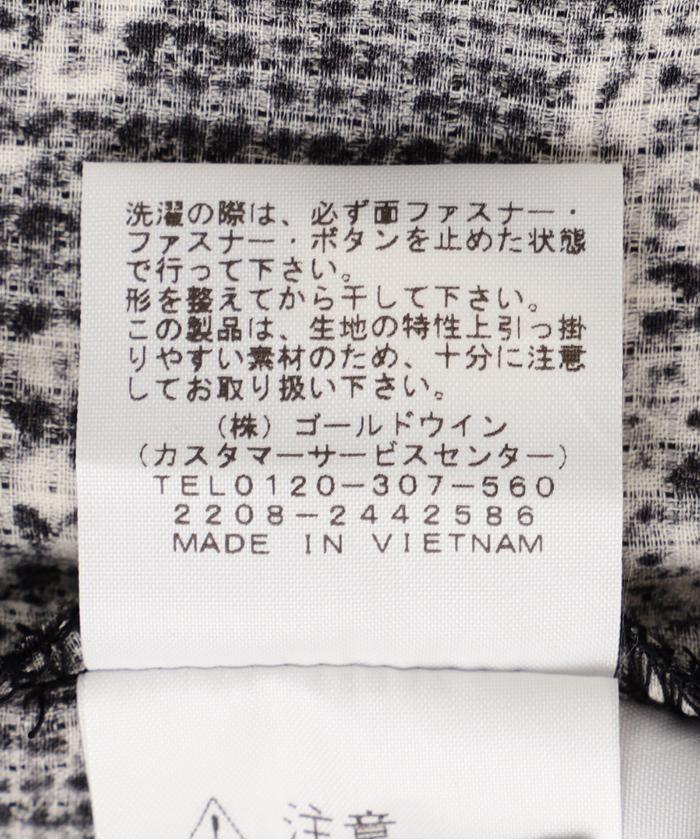 洗濯の際は、必ず面ファスナー・
ファスナー・ボタンを止めた状態
で行って下さい。
形を整えてから干して下さい。
この製品は、生地の特性上引っ掛
りやすい素材のため、十分に注意
してお取り扱い下さい。
(株)ゴールドウイン
(カスタマーサービスセンター)
TEL0120-307-560
2208-2442586
MADE IN VIETNAM
注意